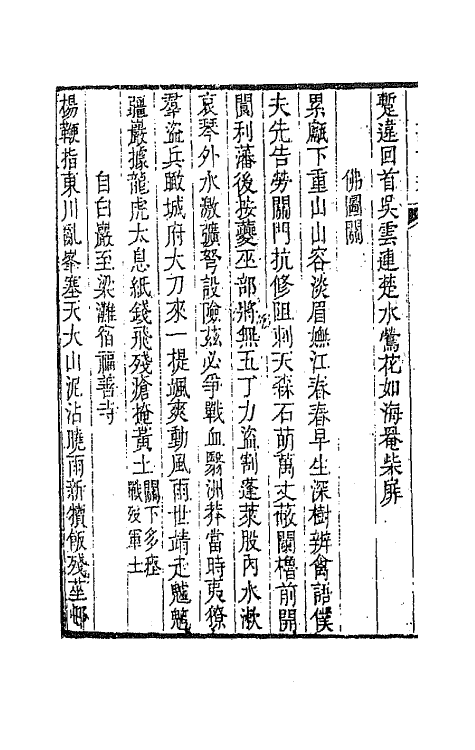 蹔違回首吳雲連楚水鶯花如海罨柴扉
佛圖關
累巘下重山山容淡眉嫵江春春早生深樹辨禽語僕
夫先告勞關門抗修阻刺天森石萌萬丈蔽關櫓前開
閬利藩後按夔巫部將無五丁力盜制蓬萊股內水漱
哀琴外水激彍弩設險茲必爭戰血翳洲莽當時夷獠
羣盜兵瞰城府大刀來一提颯爽動風雨世靖走魑魅
疆嚴據龍虎太息紙錢飛殘瘡掩黃土關下多瘞
戰歿軍士
自白巖至梁灘宿福善寺
楊鞭指東川亂峯塞天大山泥沾曉雨新犢飯殘莝